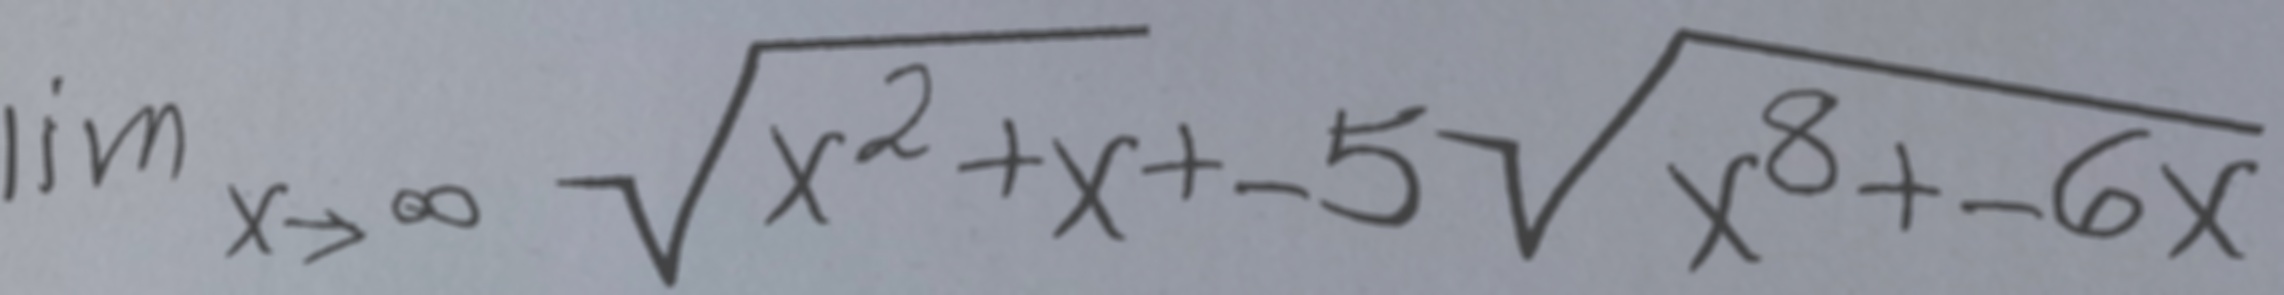 \lim_{x \to \infty} \sqrt{x^2 + x} + -5 \sqrt{x^8 + -6x}